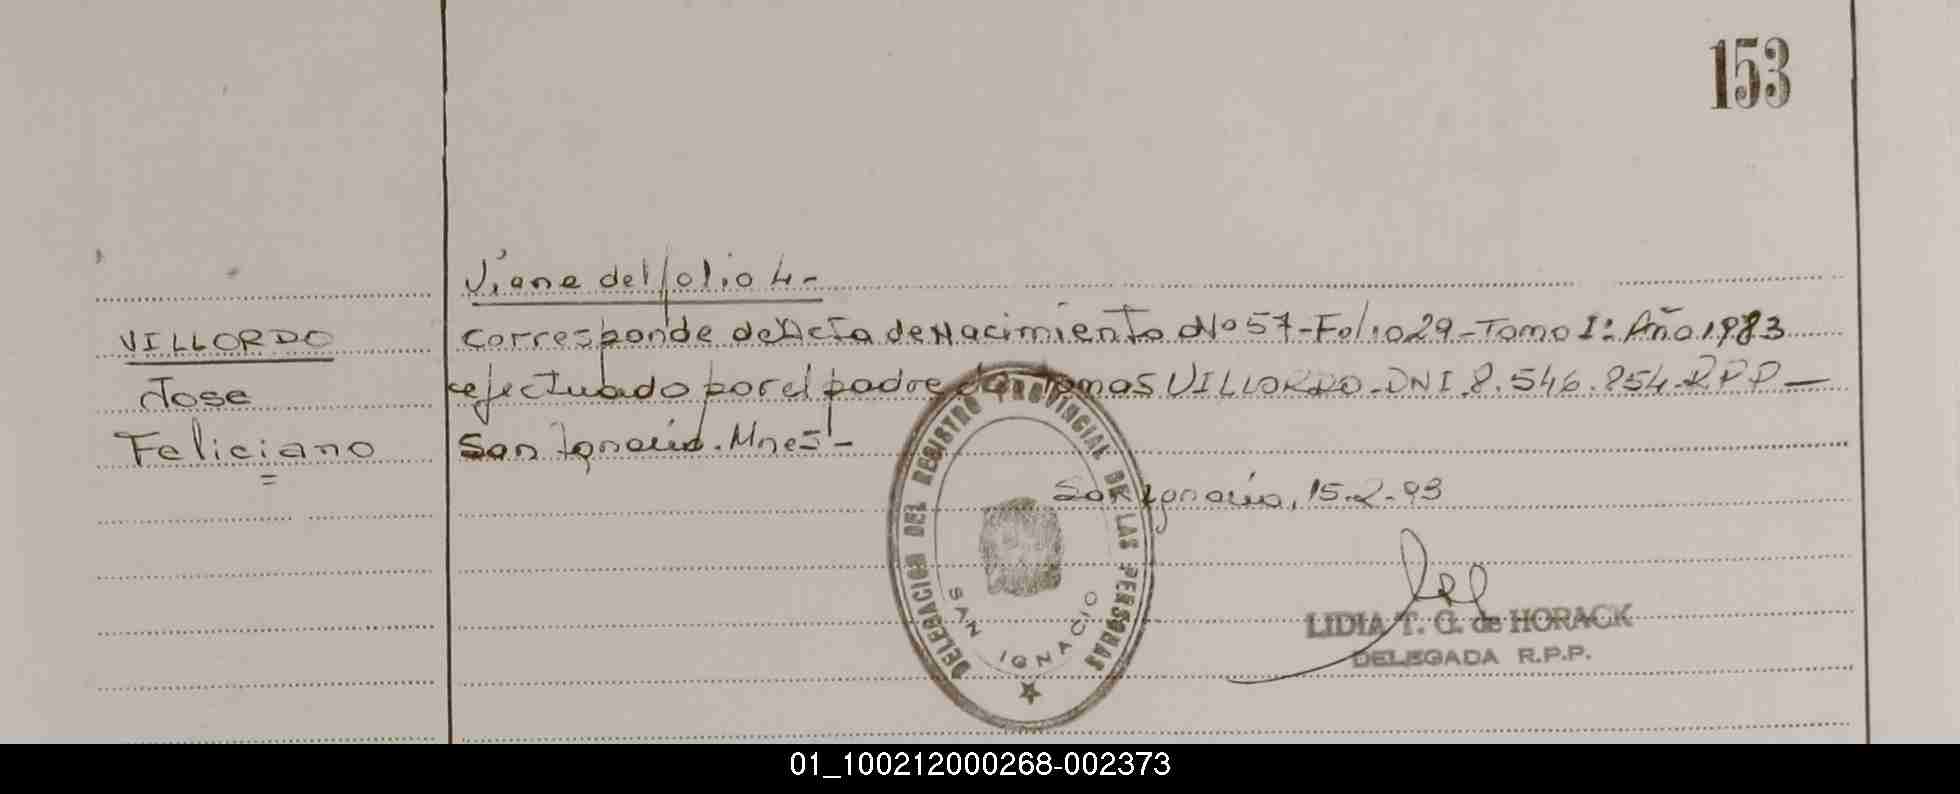 153
Viene del folio 4-
VILLORDO
corresponde del Acta de Nacimiento No 57-Folio 29-Tomo I: Año 1983
Jose
efectuado por el padre de Tomas VILLORDO-DNI 8.546.854-RPP-
Feliciano
San Ignacio. Mnes-
San Ignacio, 15-2-93
DELEGACION DEL REGISTRO PROVINCIAL DE LAS PERSONAS
SAN IGNACIO
LIDIA T. G. de HORACK
DELEGADA R.P.P.
01_100212000268-002373